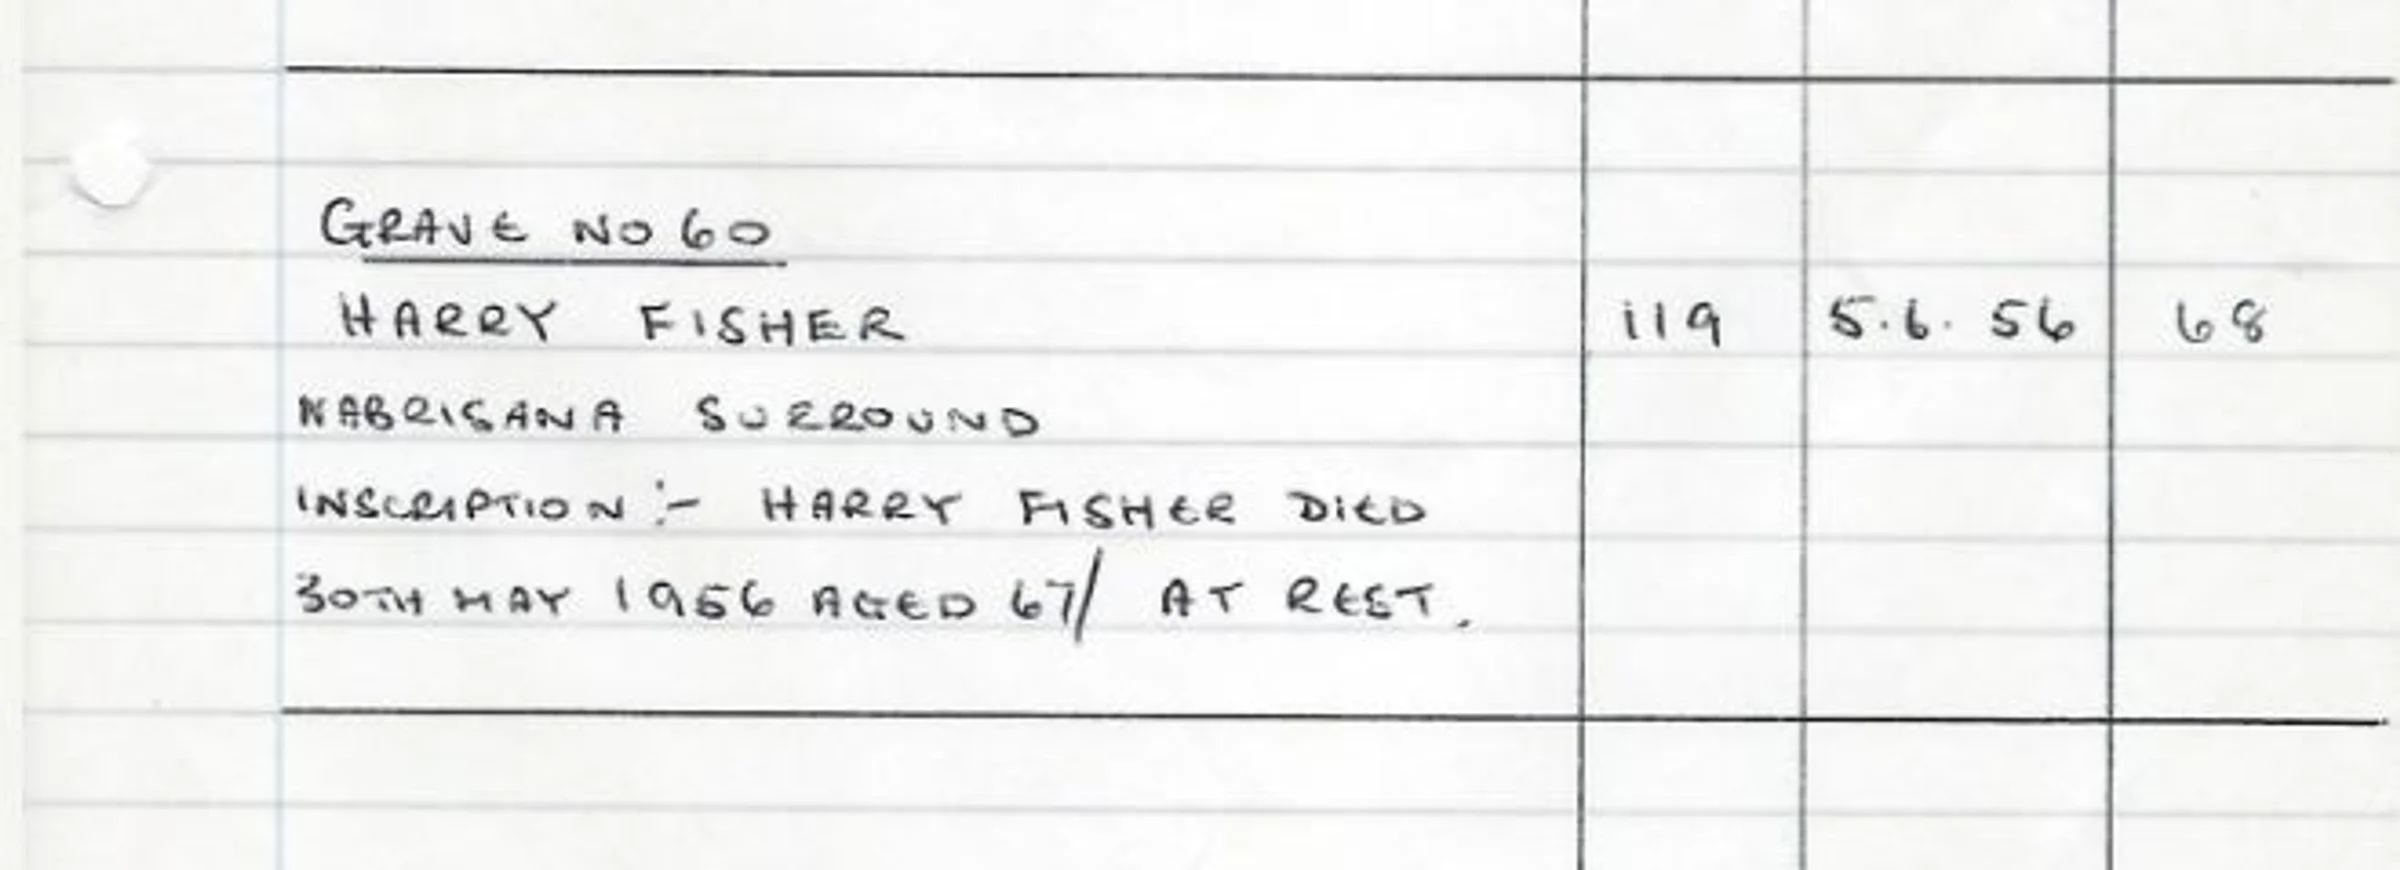 GRAVE NO 60
HARRY FISHER 119 5.6.56 68
NABRISANA SURROUND
INSCRIPTION:- HARRY FISHER DIED
30TH MAY 1956 AGED 67/ AT REST.